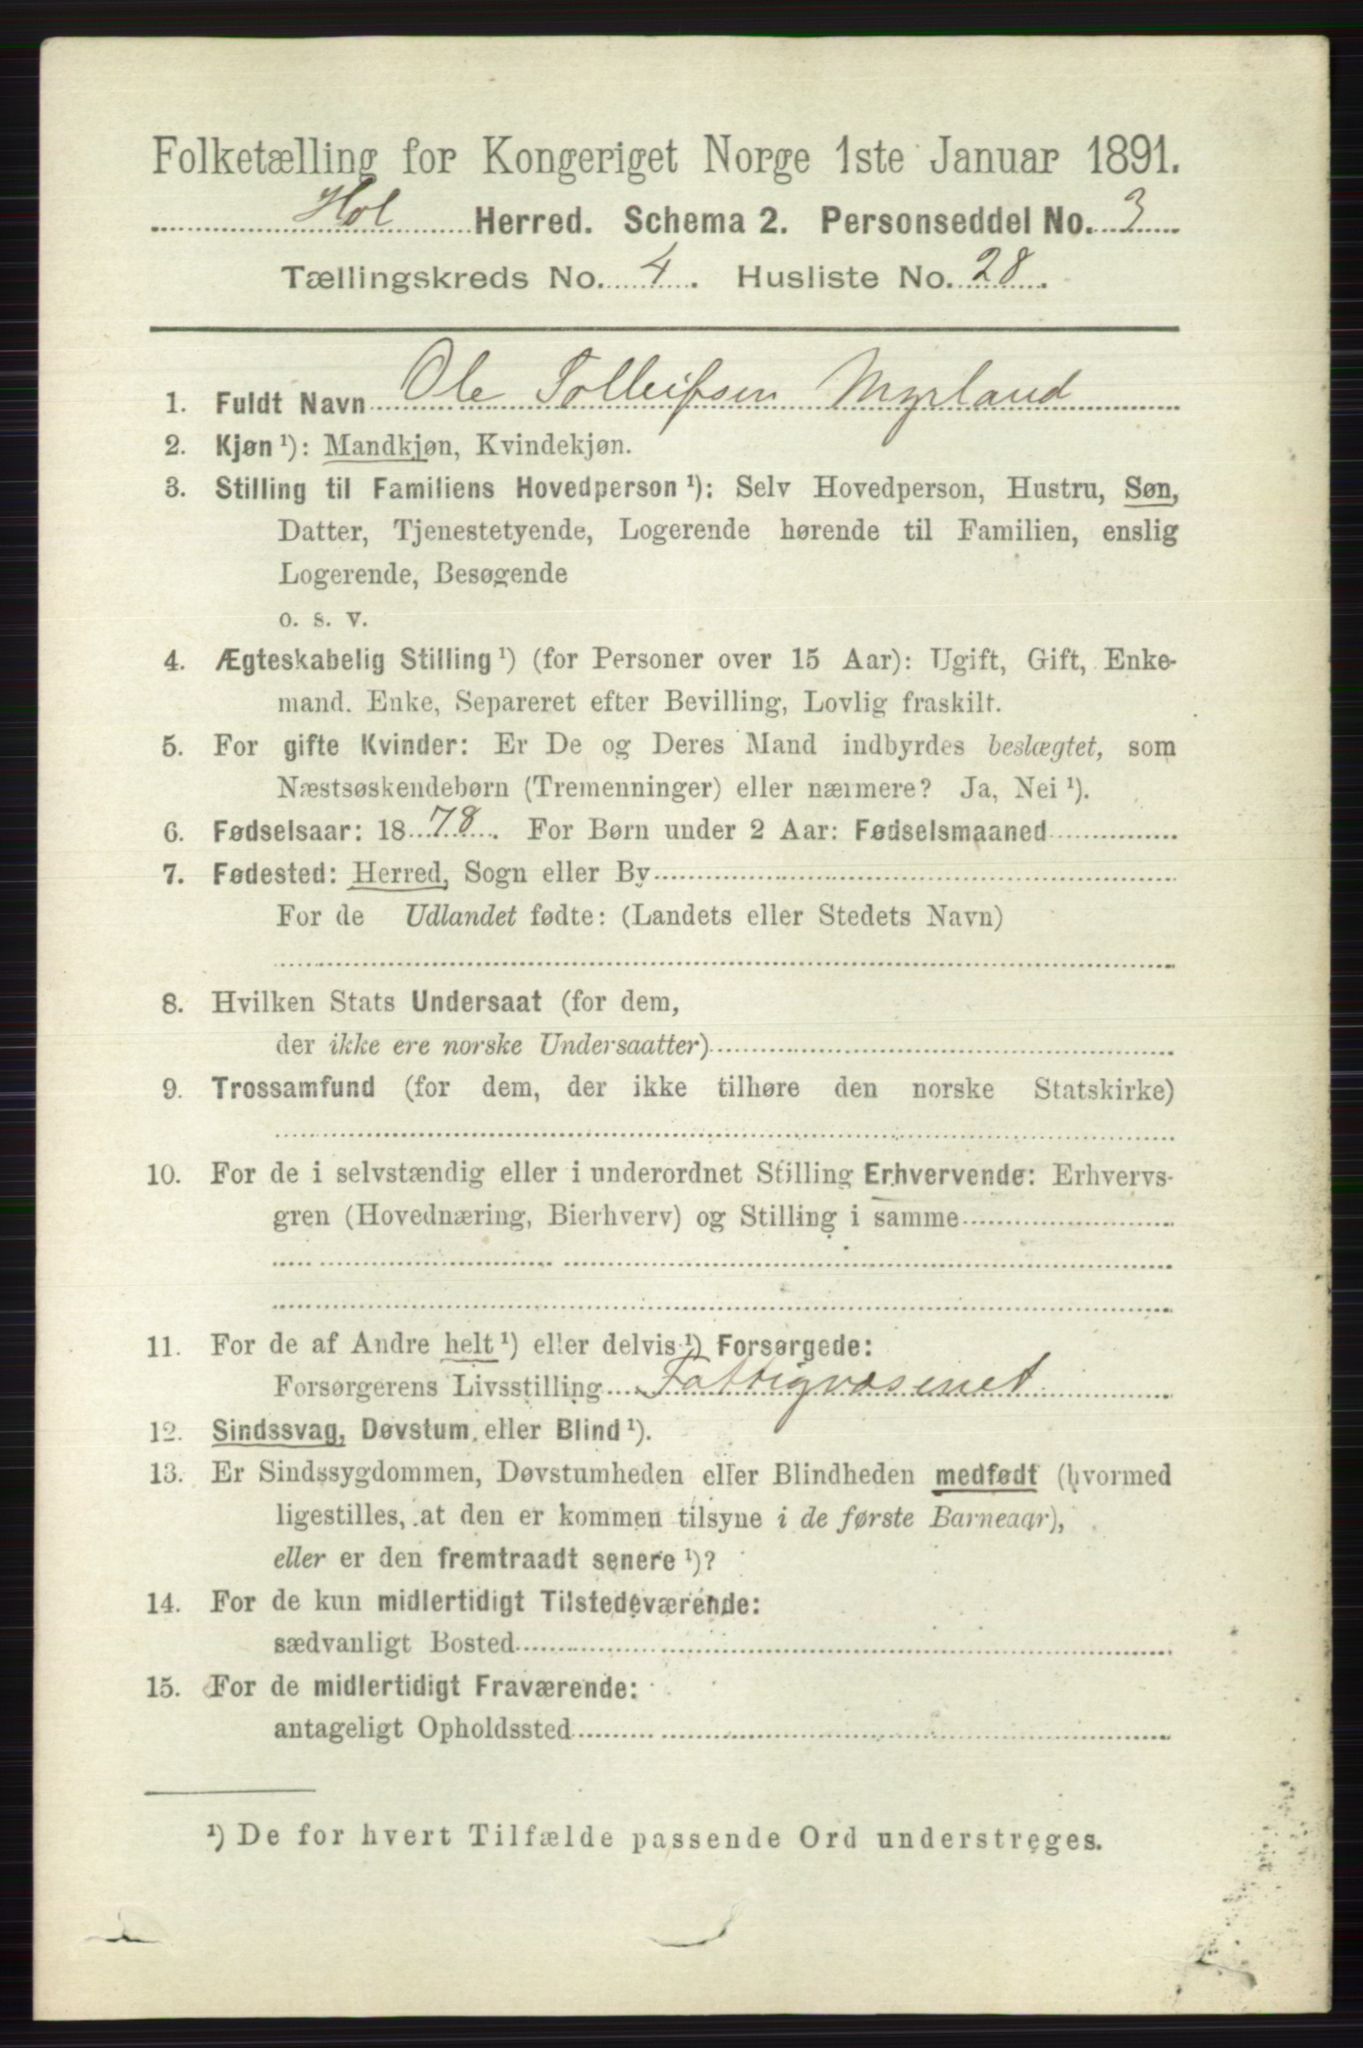 Folketælling for Kongeriget Norge 1ste Januar 1891.
Hol Herred. Schema 2. Personseddel No. 3
Tællingskreds No. 4. Husliste No. 28.
1. Fuldt Navn Ole Tolleifsen Myrland
2. Kjøn ¹): Mandkjøn, Kvindekjøn.
3. Stilling til Familiens Hovedperson ¹): Selv Hovedperson, Hustru, Søn,
Datter, Tjenestetyende, Logerende hørende til Familien, enslig
Logerende, Besøgende
o. s. v.
4. Ægteskabelig Stilling ¹) (for Personer over 15 Aar): Ugift, Gift, Enke-
mand. Enke, Separeret efter Bevilling, Lovlig fraskilt.
5. For gifte Kvinder: Er De og Deres Mand indbyrdes beslægtet, som
Næstsøskendebørn (Tremenninger) eller nærmere? Ja, Nei ¹).
6. Fødselsaar: 1878. For Børn under 2 Aar: Fødselsmaaned
7. Fødested: Herred, Sogn eller By
For de Udlandet fødte: (Landets eller Stedets Navn)
8. Hvilken Stats Undersaat (for dem,
der ikke ere norske Undersaatter)
9. Trossamfund (for dem, der ikke tilhøre den norske Statskirke)
10. For de i selvstændig eller i underordnet Stilling Erhvervende: Erhvervs-
gren (Hovednæring, Bierhverv) og Stilling i samme
11. For de af Andre helt ¹) eller delvis ¹) Forsørgede:
Forsørgerens Livsstilling Fattigvæsenet
12. Sindssvag, Døvstum eller Blind ¹).
13. Er Sindssygdommen, Døvstumheden eller Blindheden medfødt (hvormed
ligestilles, at den er kommen tilsyne i de første Barneaar),
eller er den fremtraadt senere ¹)?
14. For de kun midlertidigt Tilstedeværende:
sædvanligt Bosted
15. For de midlertidigt Fraværende:
antageligt Opholdssted
¹) De for hvert Tilfælde passende Ord understreges.